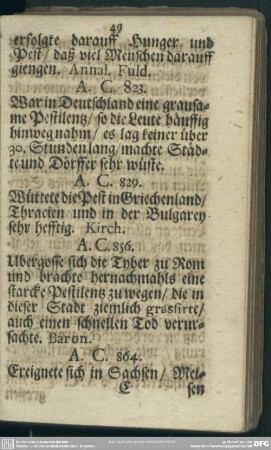 49
erfolgte darauff Hunger und
Pest/ daß viel Menschen darauff
giengen. Annal. Fuld.
A. C. 823.
War in Deutschland eine grausa-
me Pestilentz/ so die Leute häuffig
hinweg nahm/ es lag keiner über
30. Stunden lang/ machte Städ-
te und Dörffer sehr wüste.
A. C. 829.
Wüttete die Pest in Griechenland/
Thracien und in der Bulgarey
sehr hefftig. Kirch.
A. C. 856.
Ubergosse sich die Tyber zu Rom
und brachte hernachmahls eine
starcke Pestilentz zu wegen/ die in
dieser Stadt ziemlich grassirte/
auch einen schnellen Tod verur-
sachte. Baron.
A. C. 864.
Ereignete sich in Sachsen/ Meis-
C sen